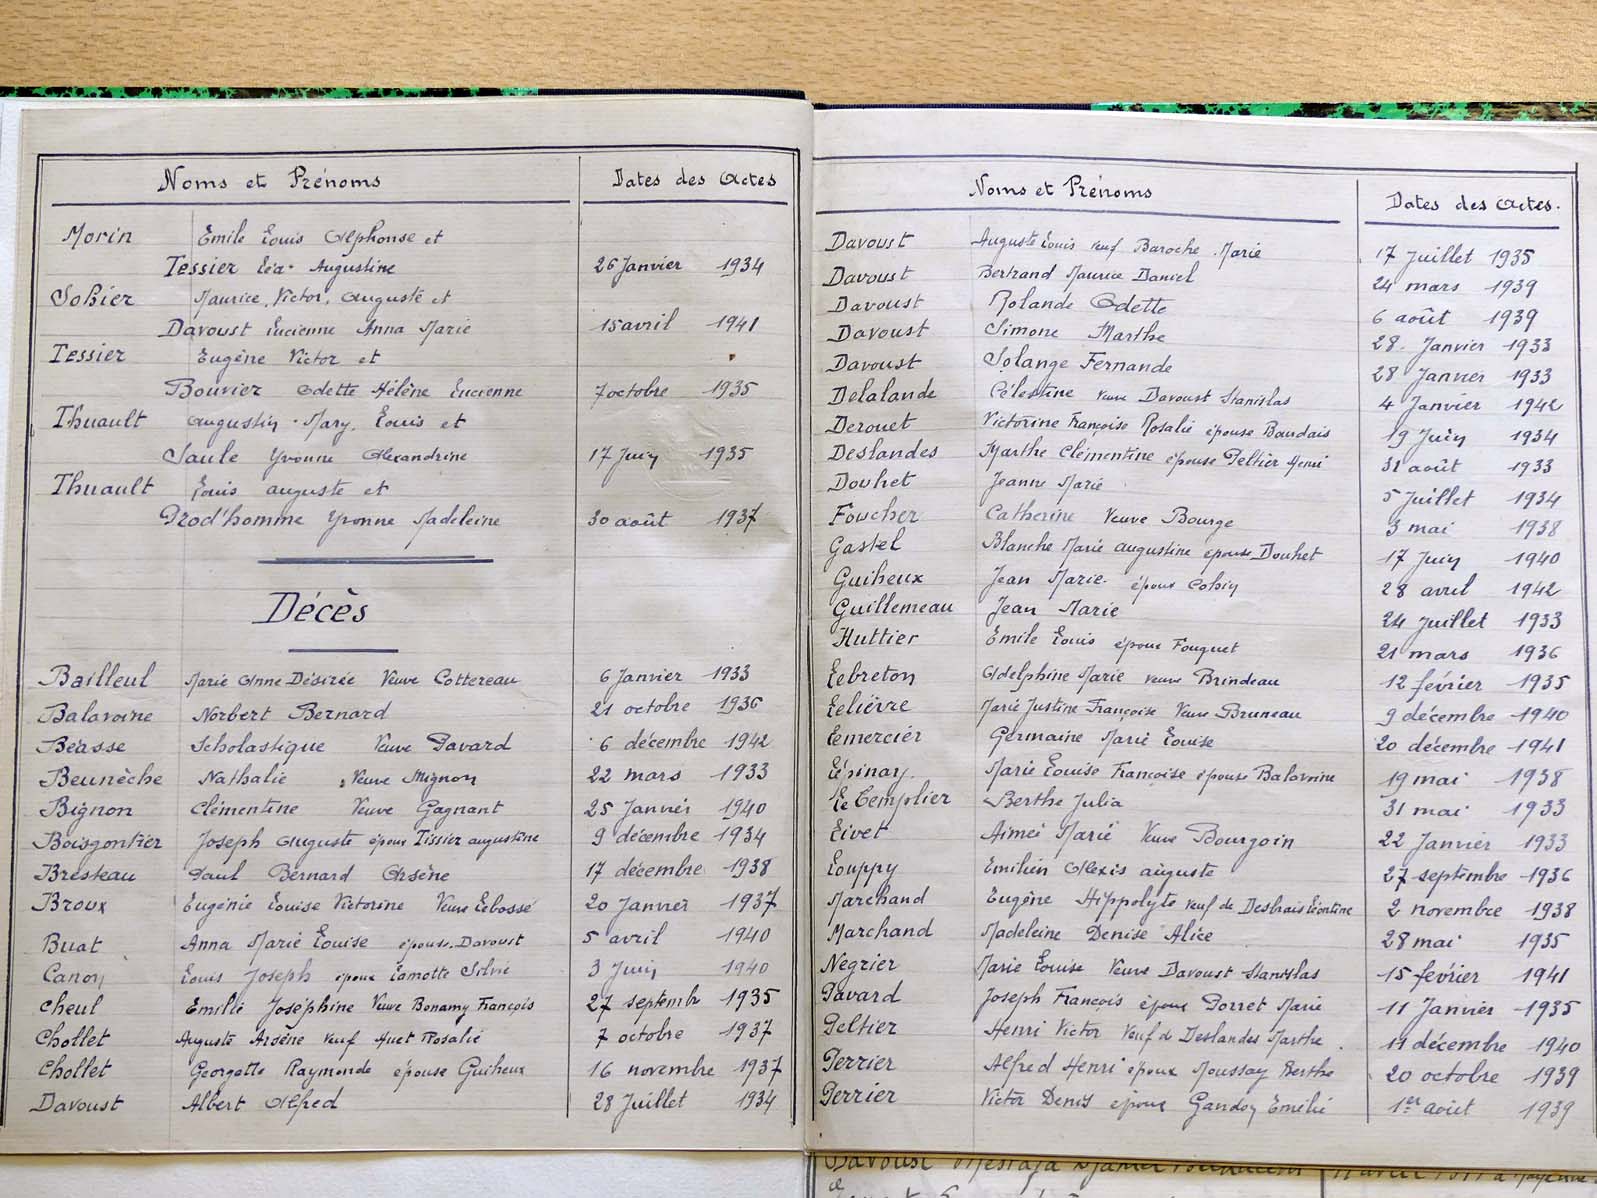 Noms et Prénoms Dates des Actes
Morin Emile Louis Alphonse et
Tessier Léa Augustine 26 Janvier 1934
Sohier Maurice, Victor, Auguste et
Davoust Lucienne Anna Marie 15 avril 1941
Tessier Eugène Victor et
Bouvier Odette Hélène Lucienne 7 octobre 1935
Thuault Augustin Mary, Louis et
Saule Yvonne Alexandrine 17 Juin 1935
Thuault Louis Auguste et
Prod'homme Yvonne Madeleine 30 août 1937
Décès
Bailleul Marie Anne Désirée Veuve Cottereau 6 Janvier 1933
Balavoine Norbert Bernard 21 octobre 1936
Béasse Scholastique Veuve Pavard 6 décembre 1942
Beunèche Nathalie Veuve Mignon 22 mars 1933
Bignon Clémentine Veuve Gagnant 25 Janvier 1940
Boisgontier Joseph Auguste époux Tessier augustine 9 décembre 1934
Bresteau Paul Bernard Arsène 17 décembre 1938
Broux Eugénie Louise Victorine Veuve Lebossé 20 Janvier 1937
Buat Anna Marie Louise épouse Davoust 5 avril 1940
Canon Louis Joseph époux Lamotte Silvie 3 Juin 1940
Cheul Emilie Joséphine Veuve Bonamy François 27 septembr 1935
Chollet Auguste Arsène veuf Huet Rosalie 7 octobre 1937
Chollet Georgette Raymonde épouse Guiheux 16 novembre 1937
Davoust Albert Alfred 28 Juillet 1934
Noms et Prénoms Dates des Actes.
Davoust Auguste Louis veuf Baroche Marie 17 Juillet 1935
Davoust Bertrand Maurice Daniel 24 mars 1939
Davoust Rolande Odette 6 août 1939
Davoust Simone Marthe 28 Janvier 1933
Davoust Solange Fernande 28 Janvier 1933
Delalande Célestine veuve Davoust Stanislas 4 Janvier 1942
Derouet Victorine Françoise Rosalie épouse Baudais 19 Juin 1934
Deslandes Marthe Clémentine épouse Peltier Henri 31 août 1933
Douhet Jeanne Marie 5 Juillet 1934
Foucher Catherine Veuve Bourge 3 mai 1938
Gastel Blanche Marie augustine épouse Douhet 17 Juin 1940
Guiheux Jean Marie époux Cohin 28 avril 1942
Guillemeau Jean Marie 24 juillet 1933
Huttier Emile Louis époux Fouquet 21 mars 1936
Lebreton Adelphine Marie veuve Brindeau 12 février 1935
Lelièvre Marie Justine Françoise Veuve Bruneau 9 décembre 1940
Lemercier Germaine Marie Louise 20 décembre 1941
Lépinay Marie Louise Françoise épouse Balavoine 19 mai 1938
Le Templier Berthe Julia 31 mai 1933
Livet Aimée Marie Veuve Bourgoin 22 Janvier 1933
Louppy Emilien Alexis auguste 27 septembre 1936
Marchand Eugène Hippolyte veuf de Desbrais Léontine 2 novembre 1938
Marchand Madeleine Denise Alice 28 mai 1935
Negrier Marie Louise Veuve Davoust Stanislas 15 février 1941
Pavard Joseph François époux Porret Marie 11 Janvier 1935
Peltier Henri Victor Veuf de Deslandes Marthe 11 décembre 1940
Perrier Alfred Henri époux Moussay Berthe 20 octobre 1939
Perrier Victor Denis époux Gandon Emélie 1er août 1939
Davoust